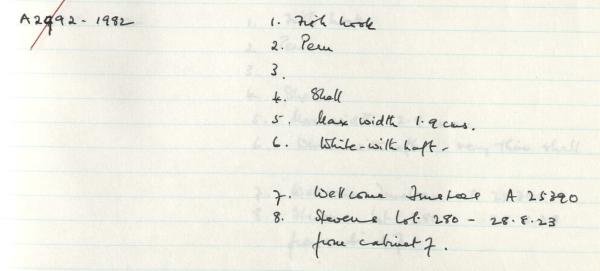 A2992-1982
1. Fish hook
2. Peru
3.
4. Shell
5. Max width 1.9 cms.
6. White-with haft-
7. Wellcome Trustees A 25390
8. Stevens Lot. 280 - 28.8.23
from cabinet 7.